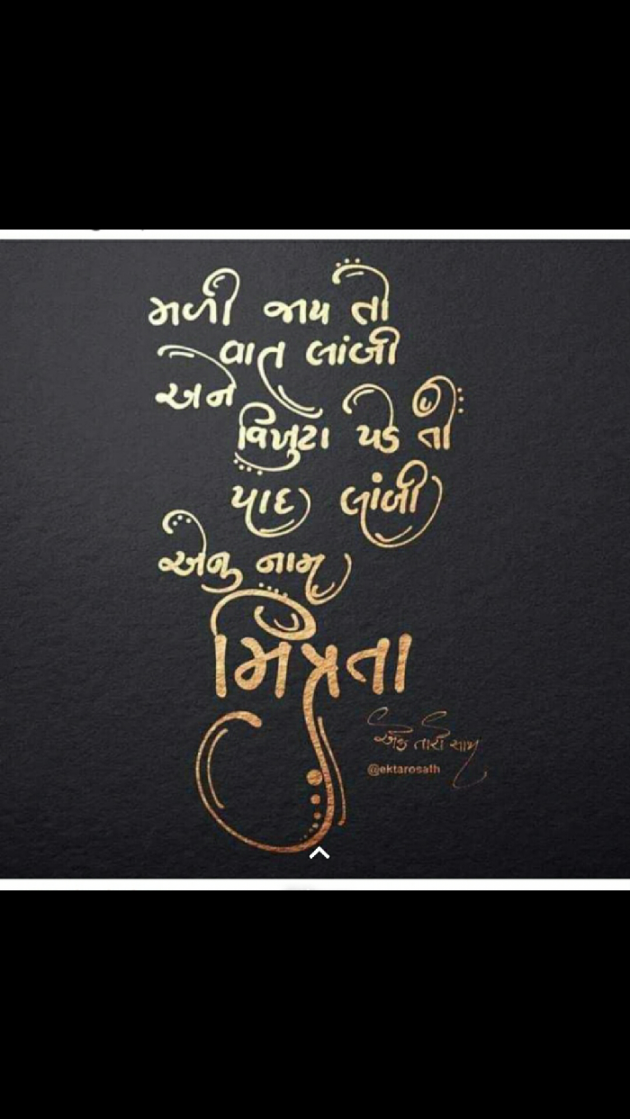 મળી જાય તો
વાત લાંબી
અને
વિખુટા પડે તો
યાદ લાંબી
એનુ નામ
મિત્રતા
એક તારો સાથ
@ektarosath